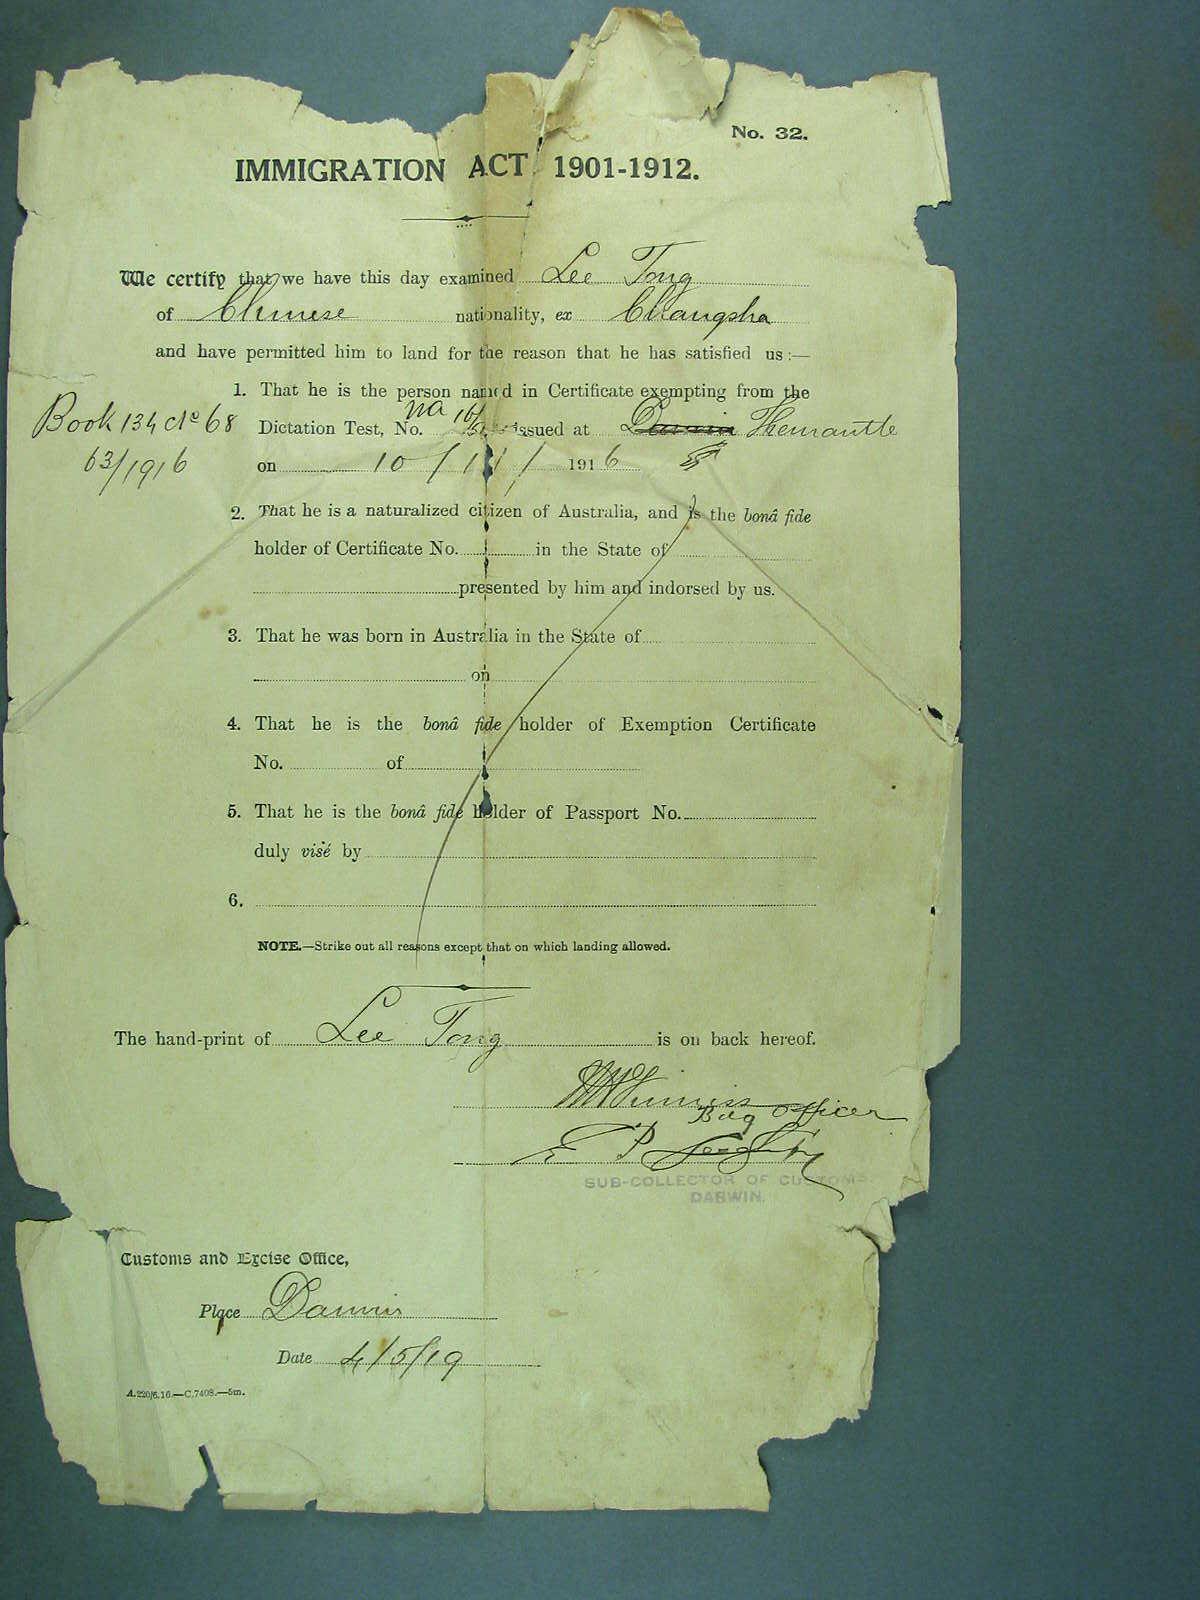 No. 32.
IMMIGRATION ACT 1901-1912.
We certify that we have this day examined Lee Tong
of Chinese nationality, ex Changsha
and have permitted him to land for the reason that he has satisfied us:—
1. That he is the person named in Certificate exempting from the
Book 134 No 68 Dictation Test, No. issued at Darwin Fremantle
63/1916 on 10/11/1916
2. That he is a naturalized citizen of Australia, and is the bonâ fide
holder of Certificate No. in the State of
presented by him and indorsed by us.
3. That he was born in Australia in the State of
on
4. That he is the bonâ fide holder of Exemption Certificate
No. of
5. That he is the bonâ fide holder of Passport No.
duly visé by
6.
NOTE.—Strike out all reasons except that on which landing allowed.
The hand-print of Lee Tong is on back hereof.
Bdg Officer
E P
SUB-COLLECTOR OF CUSTOMS.
DARWIN.
Customs and Excise Office,
Place Darwin
Date 4/5/19
A.220/6.16.—C.7408.—5m.